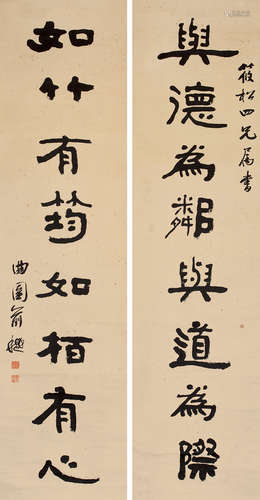 筱松四兄属书
與德為鄰與道為際
如竹有筠如栢有心
曲園俞樾